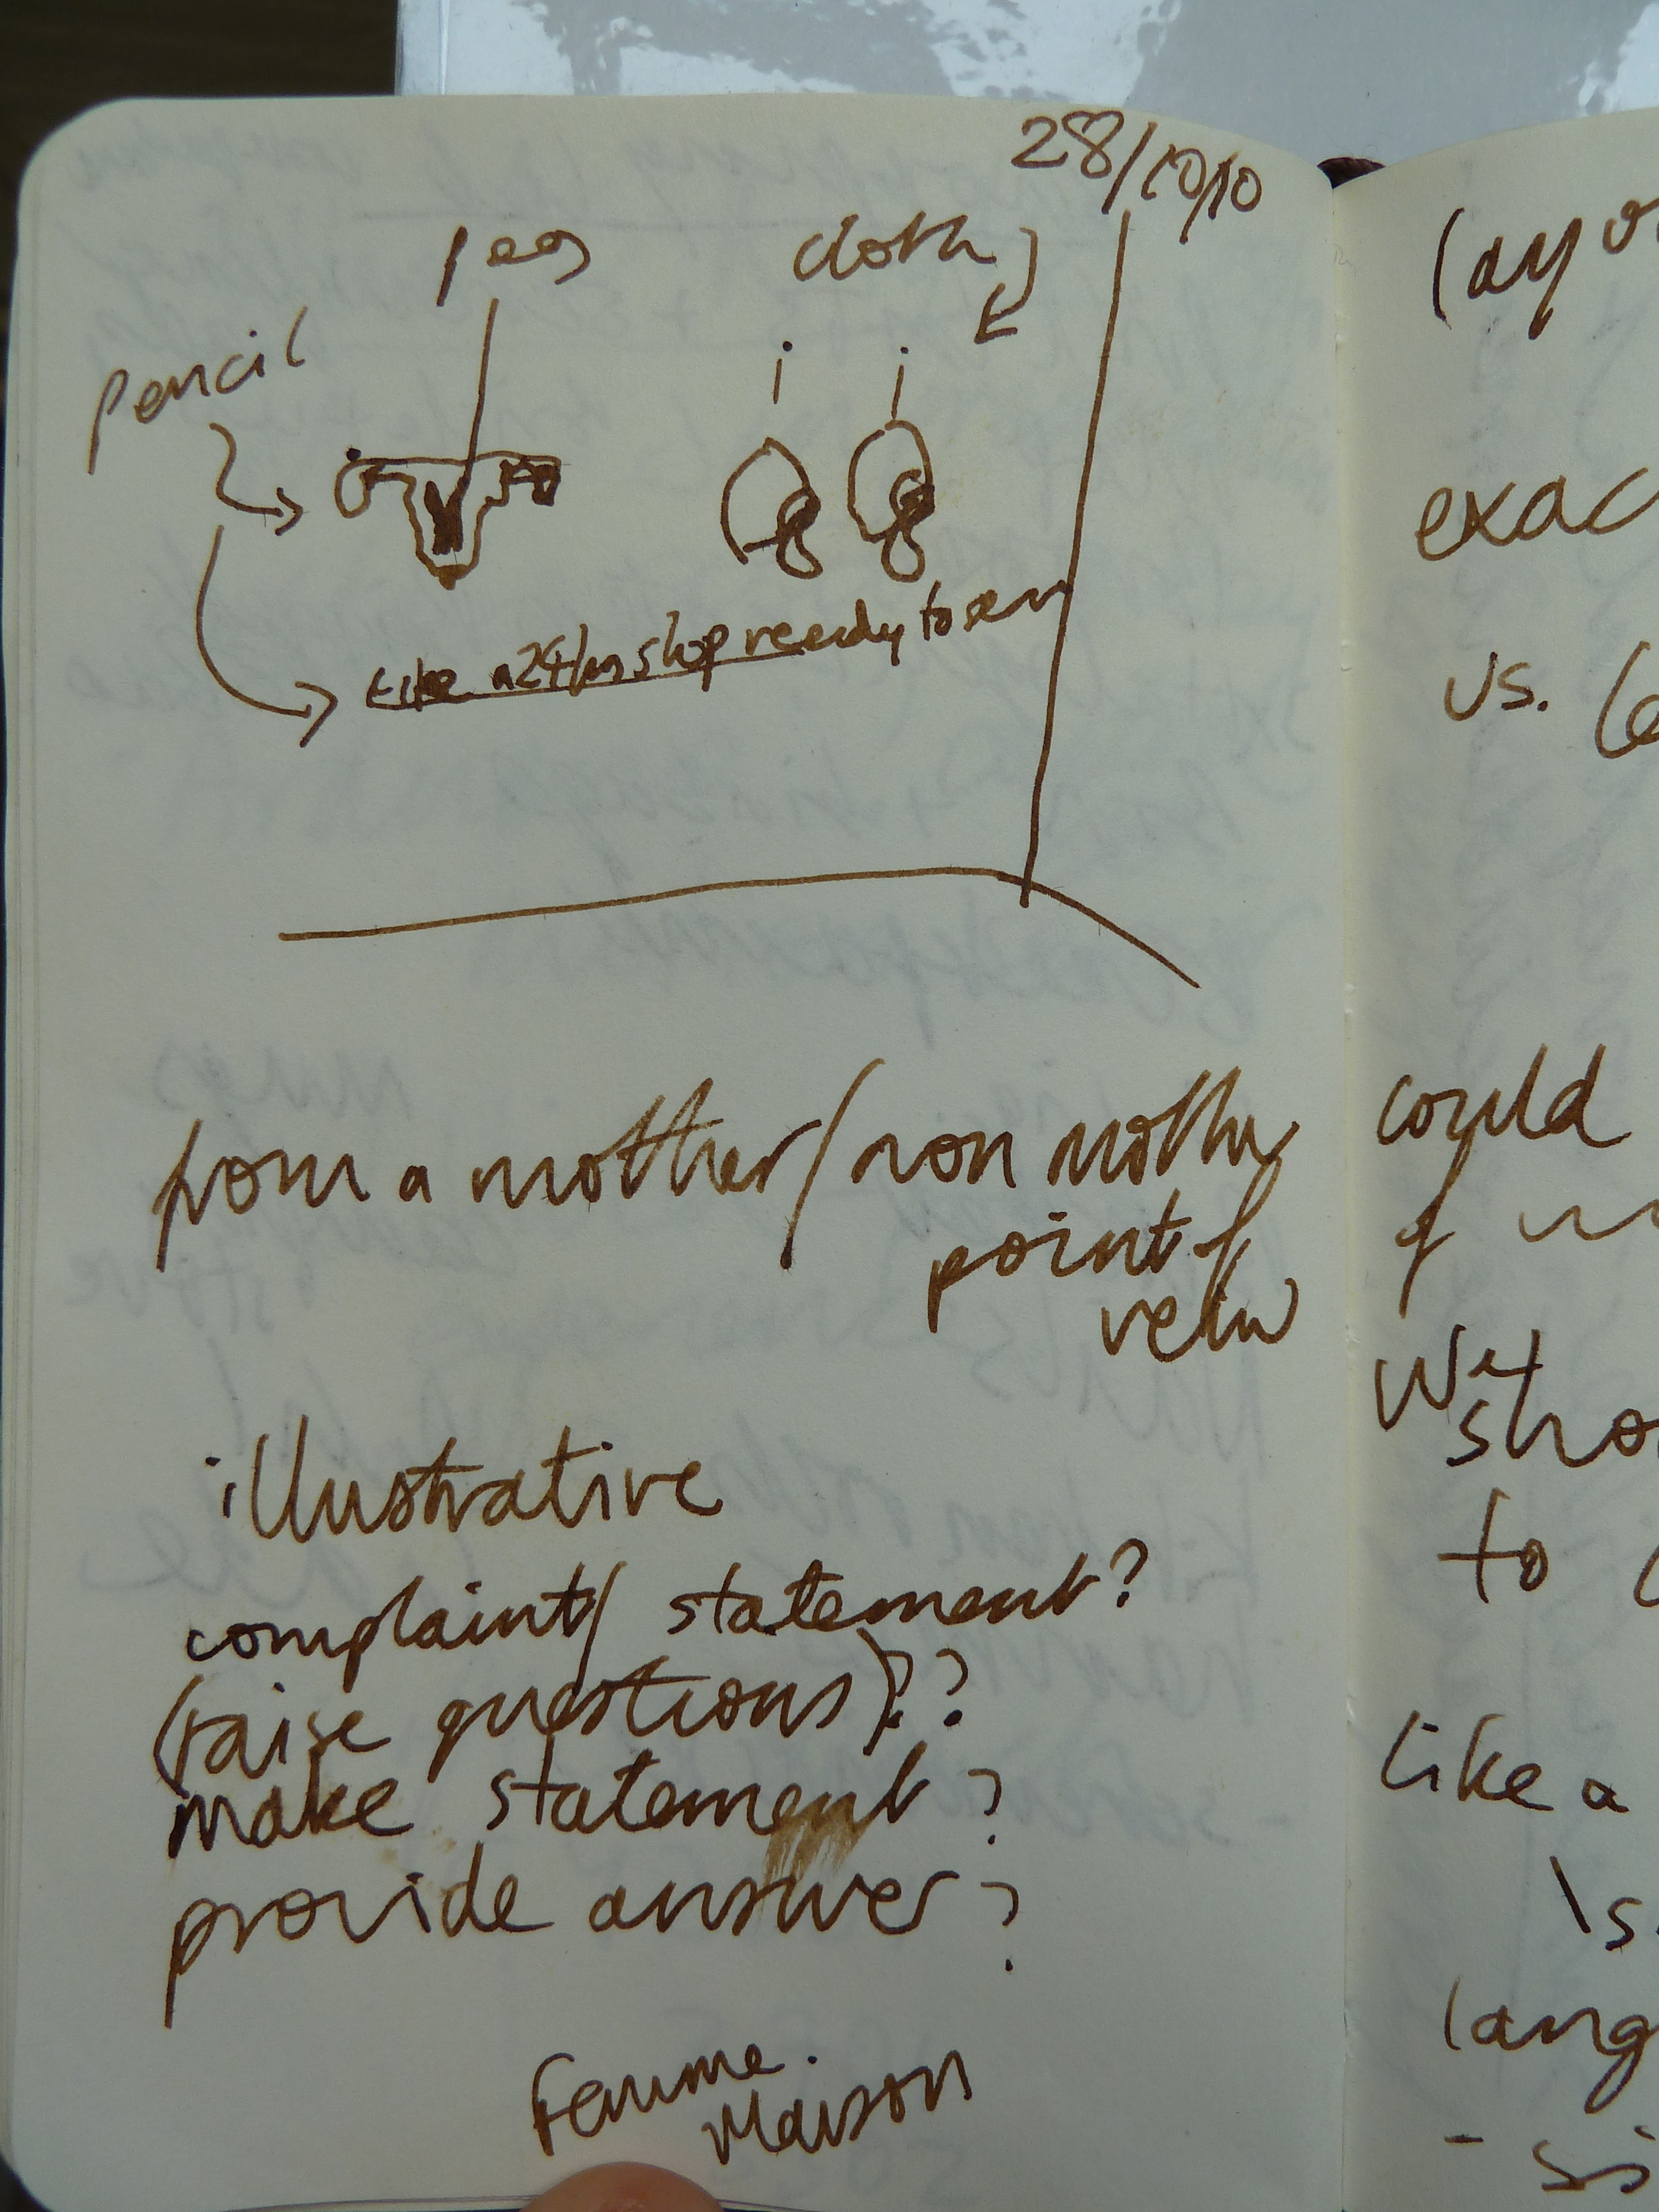 28/10/10
peg
cloth
pencil
i i
Like a 24/hs shop ready to serv
from a mother/non mother
point of
veiw
illustrative
complaint/ statement?
(raise questions)??
make statement?
provide answer?
Femme.
Maison
(ay
exac
us.
could
of
Wet
stro
to
like a
\s
lang
- si